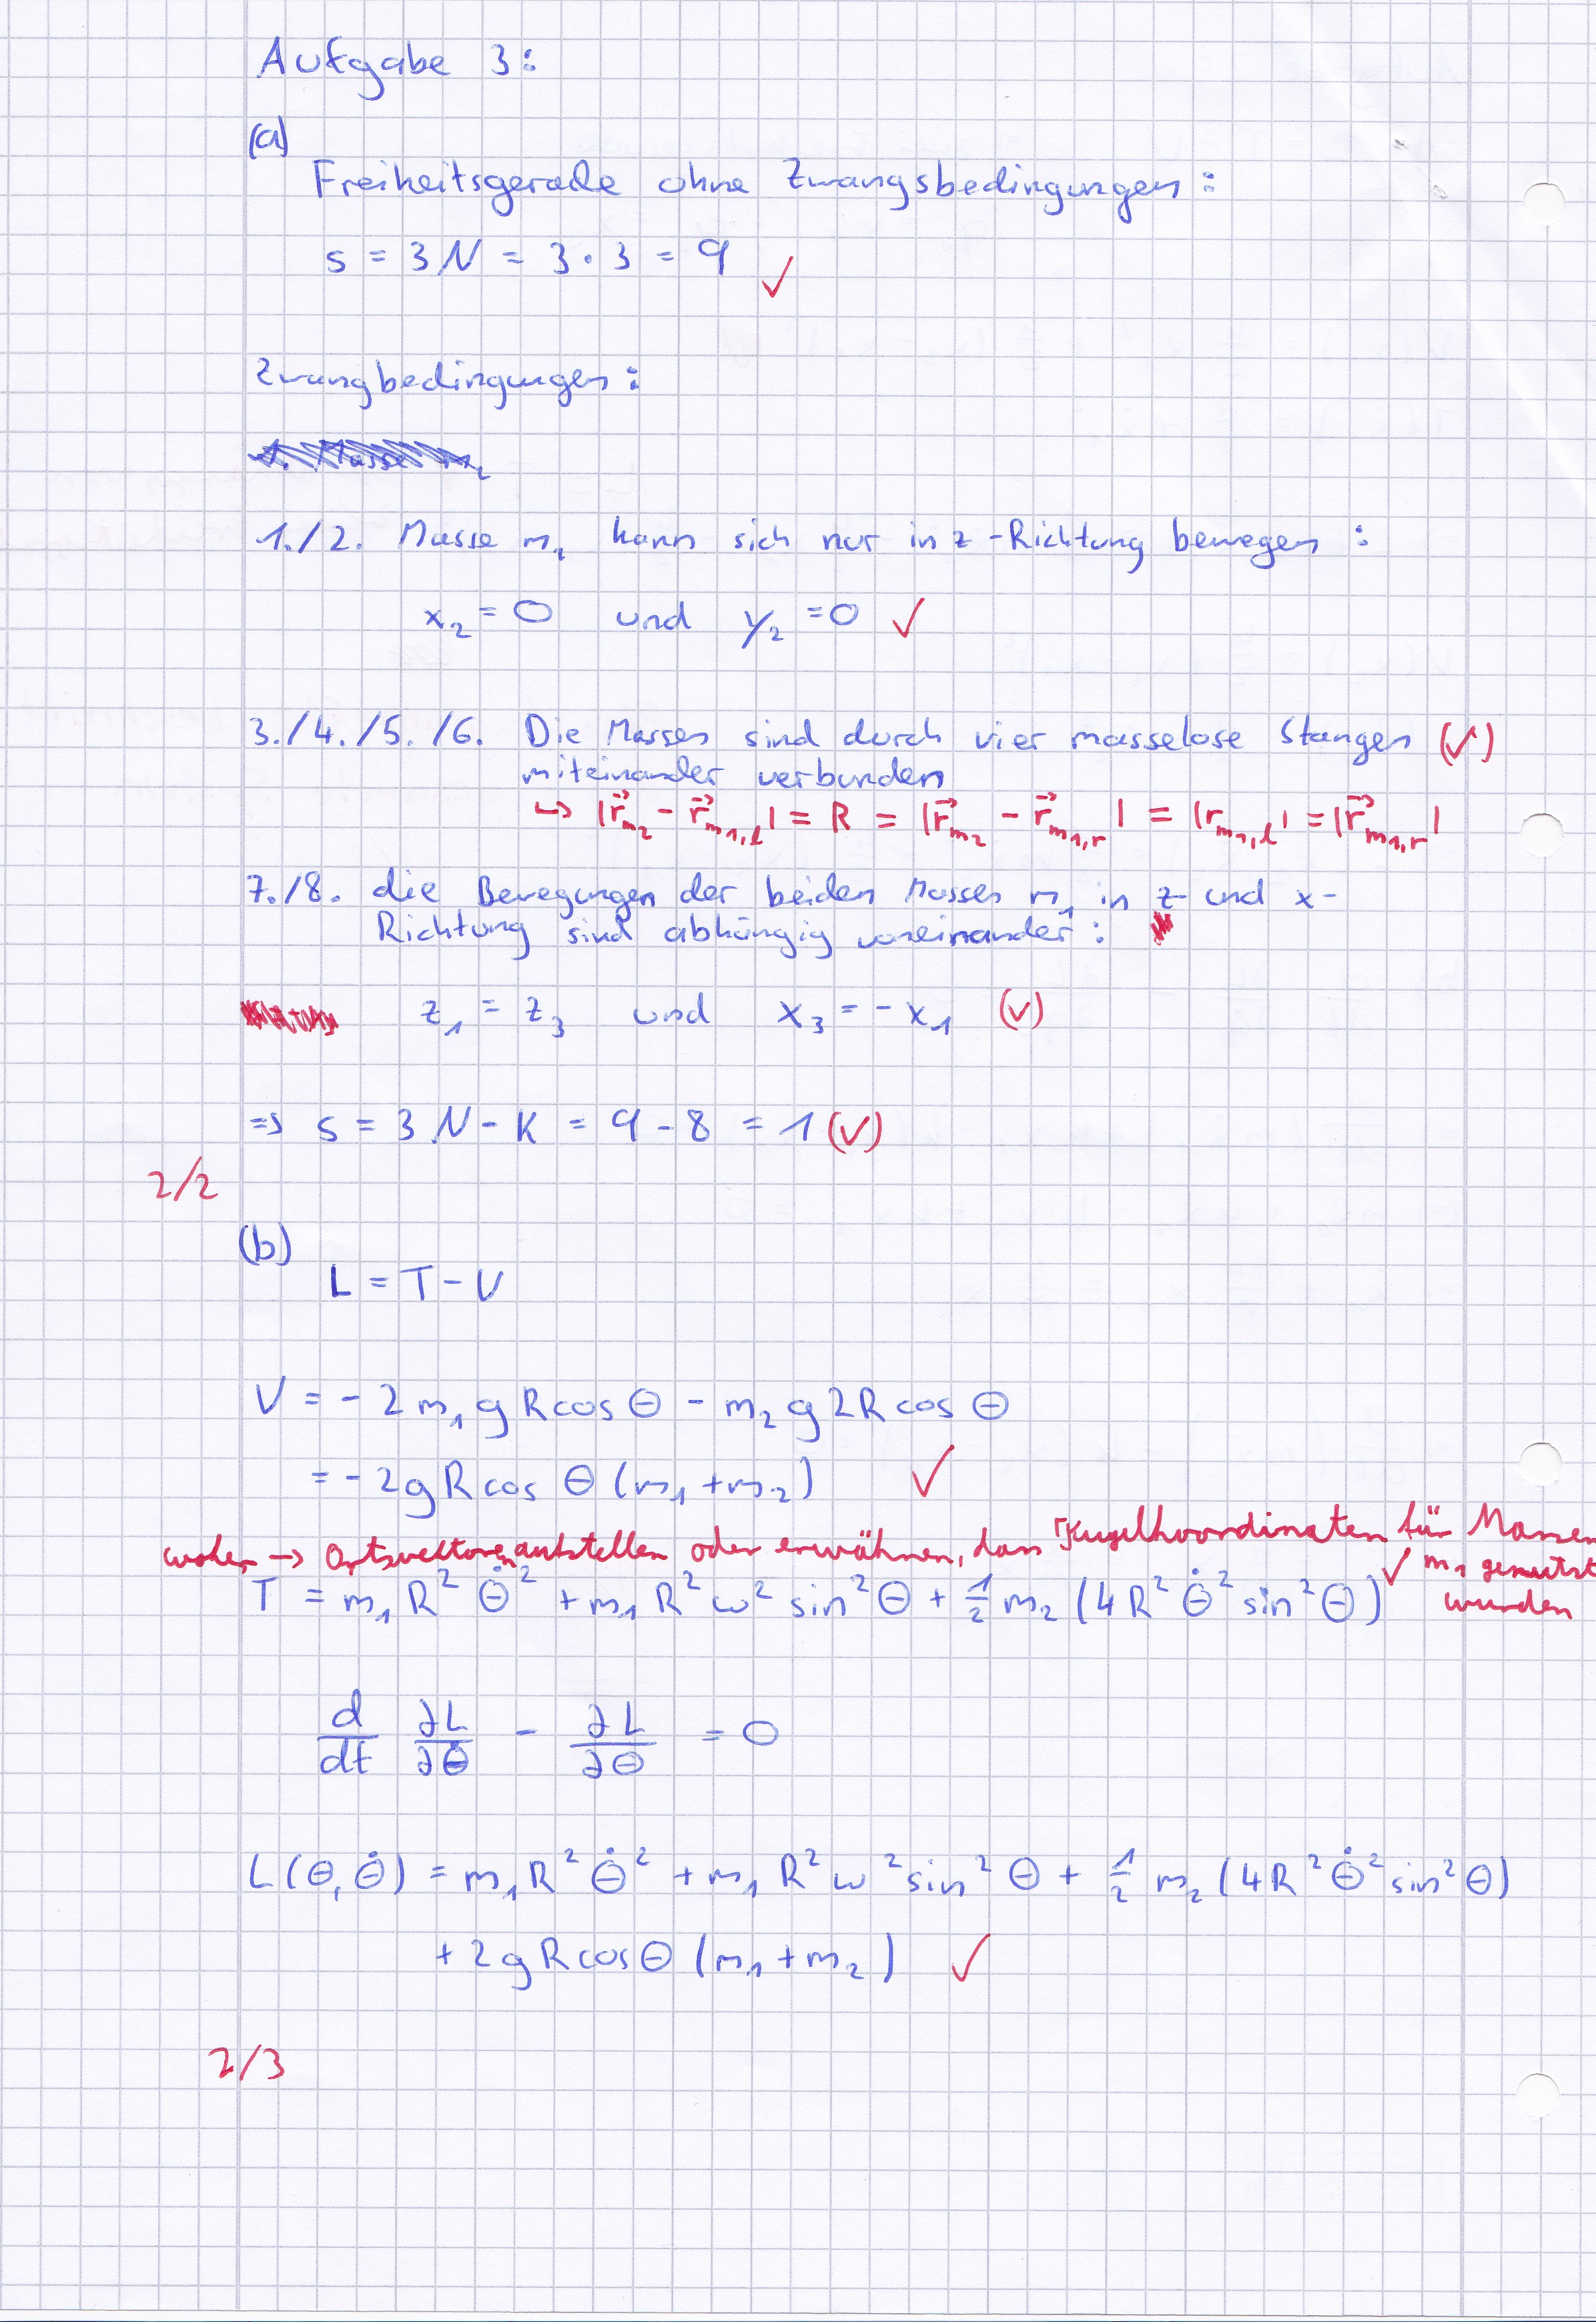 Aufgabe 3:
(a)
Freiheitsgerade ohne Zwangsbedingungen:
s = 3N = 3·3 = 9 ✓
Zwangbedingungen:
1./2. Masse m₂ kann sich nur in z-Richtung bewegen:
x₂ = 0 und y₂ = 0 ✓
3./4./5./6. Die Massen sind durch vier masselose Stangen (✓)
miteinander verbunden
↳ |r⃗_m₂ - r⃗_m₁,l| = R = |r⃗_m₂ - r⃗_m₁,r| = |r_m₁,l| = |r⃗_m₁,r|
7./8. die Bewegungen der beiden Massen m₁ in z- und x-
Richtung sind abhängig voneinander:
z₁ = z₃ und x₃ = -x₁ (✓)
=> s = 3N - K = 9 - 8 = 1 (✓)
2/2
(b)
L = T - V
V = -2m₁gRcosΘ - m₂g2RcosΘ
= -2gRcosΘ(m₁+m₂) ✓
woher → Ortsvektoren aufstellen oder erwähnen, dass Kugelkoordinaten für Massen
m₁ genutzt
wurden
T = m₁R²Θ̇² + m₁R²ω²sin²Θ + 1/2 m₂(4R²Θ̇²sin²Θ) ✓
d/dt ∂L/∂Θ̇ - ∂L/∂Θ = 0
L(Θ,Θ̇) = m₁R²Θ̇² + m₁R²ω²sin²Θ + 1/2 m₂(4R²Θ̇²sin²Θ)
+2gRcosΘ(m₁+m₂) ✓
2/3